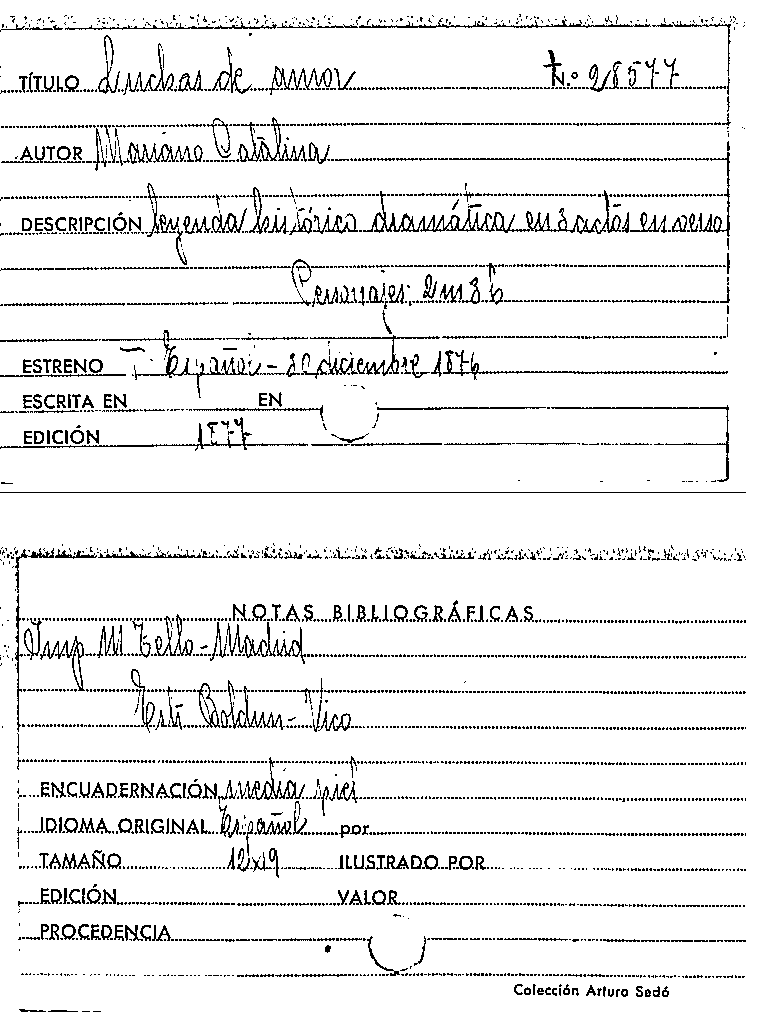 TÍTULO Luchas de amor N.º 28577
AUTOR Mariano Catalina
DESCRIPCIÓN leyenda histórico dramática en 3 actos en verso
Personajes: 2 m 8 h
ESTRENO T. Español - 30 diciembre 1876
ESCRITA EN EN
EDICIÓN 1877
NOTAS BIBLIOGRÁFICAS
Imp M Tello - Madrid
Boldun - Vico
ENCUADERNACIÓN media piel
IDIOMA ORIGINAL Español por
TAMAÑO 12x19 ILUSTRADO POR
EDICIÓN VALOR
PROCEDENCIA
Colección Arturo Sedó